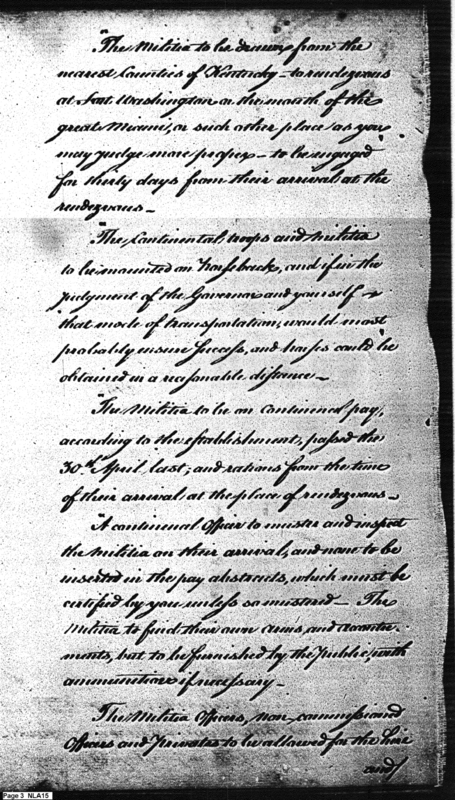 "The Militia to be drawn from the
nearest Counties of Kentucky — to rendezvous
at Fort Washington or the mouth of the
great Miami, or such other place as you
may judge more proper — to be engaged
for thirty days from their arrival at the
rendezvous —
"The Continental, troops and Militia
to be mounted on horseback, and if in the
judgment of the Governor and yourself
that mode of transportation, would most
probably ensure success, and horses could be
obtained in a reasonable distance —
"The Militia to be on continental pay,
according to the establishment, passed the
30th April last; and rations from the time
of their arrival at the place of rendezvous —
"A continental Officer to muster and inspect
the Militia on their arrival, and none to be
inserted in the pay abstracts, which must be
certified by you unless so mustered — The
Militia to find their own arms, and accoutre
ments, but to be furnished by the Public, with
ammunition if necessary —
The Militia Officers, non-commissioned
Officers and Privates to be allowed for the hire
and/
Page 3 NLA15